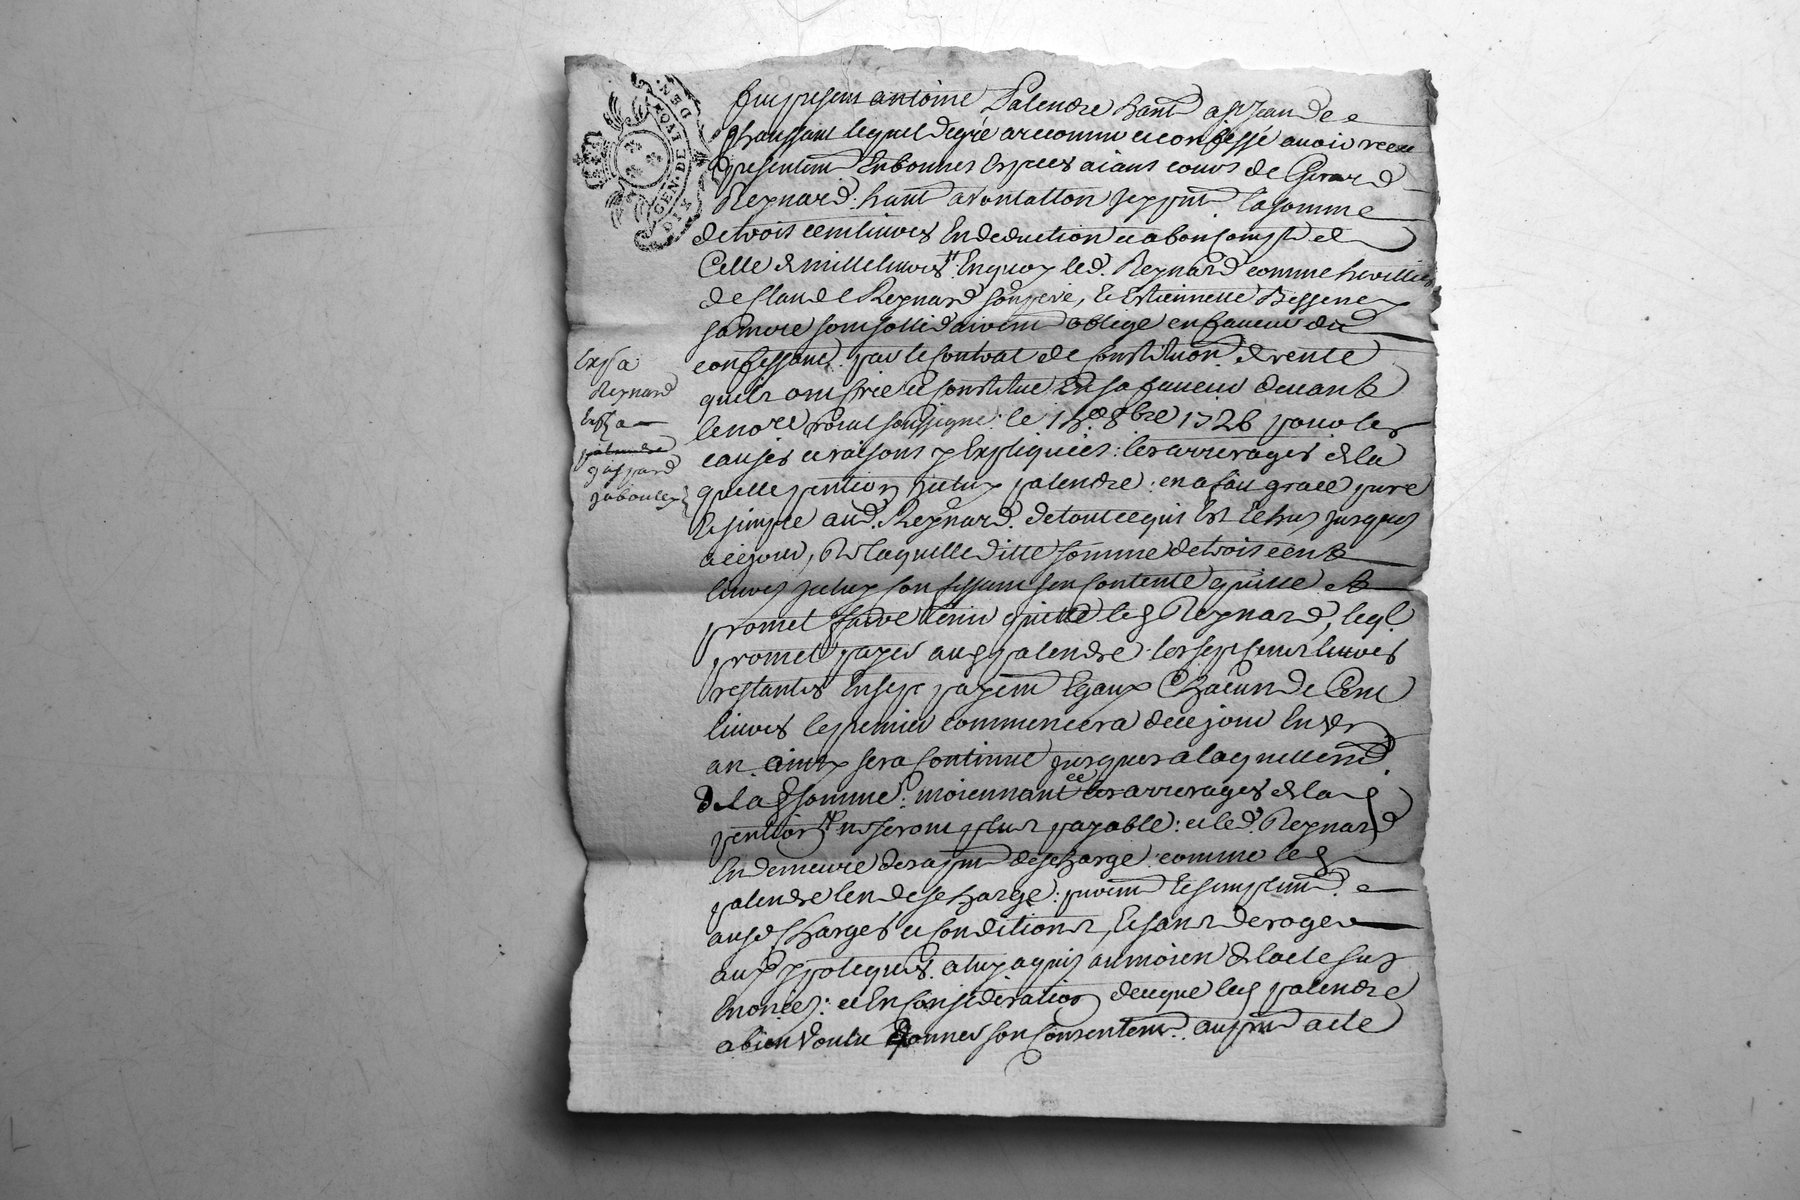 GEN. DE LYON
DIX DEN.
fut present antoine Palendre hant a st Jean de
Chaussant lequel de gré a reconnu et confessé avoir receu
presentemt En bonnes Especes aiant cours de Girard
Reynard: hant a vontallon Icy pnt la somme
de trois cent livres En deduction et a bon compte de
Celle de mille livres En quoy led. Reynard comme heritier
de Claude Reynard son pere, Et Estiennette Bessenex
sa mere sont sollidairemt obligé en faveur dud
confessant par le Contrat de Constitution de rente
quils ont crée et Constitué En sa faveur devant
le nore roial soussigné le 8bre 1726 pour les
causes et raisons y Expliquées: les arrerages de la
quelle pention Iceluy palendre: en a fait grace pure
Et simple aud. Reynard. de tout ce quis Est Echus jusques
a ce jour, De laquelle ditte somme de trois cent
livres Iceluy Confessant sen Contente quitte et
promet faire tenir quitte led Reynard, leql
promet payer aud palendre les sept cent livres
restantes En sept payemt Egaux Chacun de Cent
livres le premier commencera de ce jour En un
an ainsy sera Continué jusques a laquittemt
de la d somme: moiennant ce les arrerages de la d
pention ne seront plus payable: et led. Reynard
En demeure des a pnt deschargé comme led
palendre len descharge: purem Et simplemt
ausd Charges et Conditions, Et sans deroger
aux ypoteques a luy aquis au moien de lacte sus
Enoncé: et En Consideration de ce que led palendre
a bien voulu donner son Consentemt au pnt acte
Expa
Reynard
Expa
palendre
gaspard
jaboulex